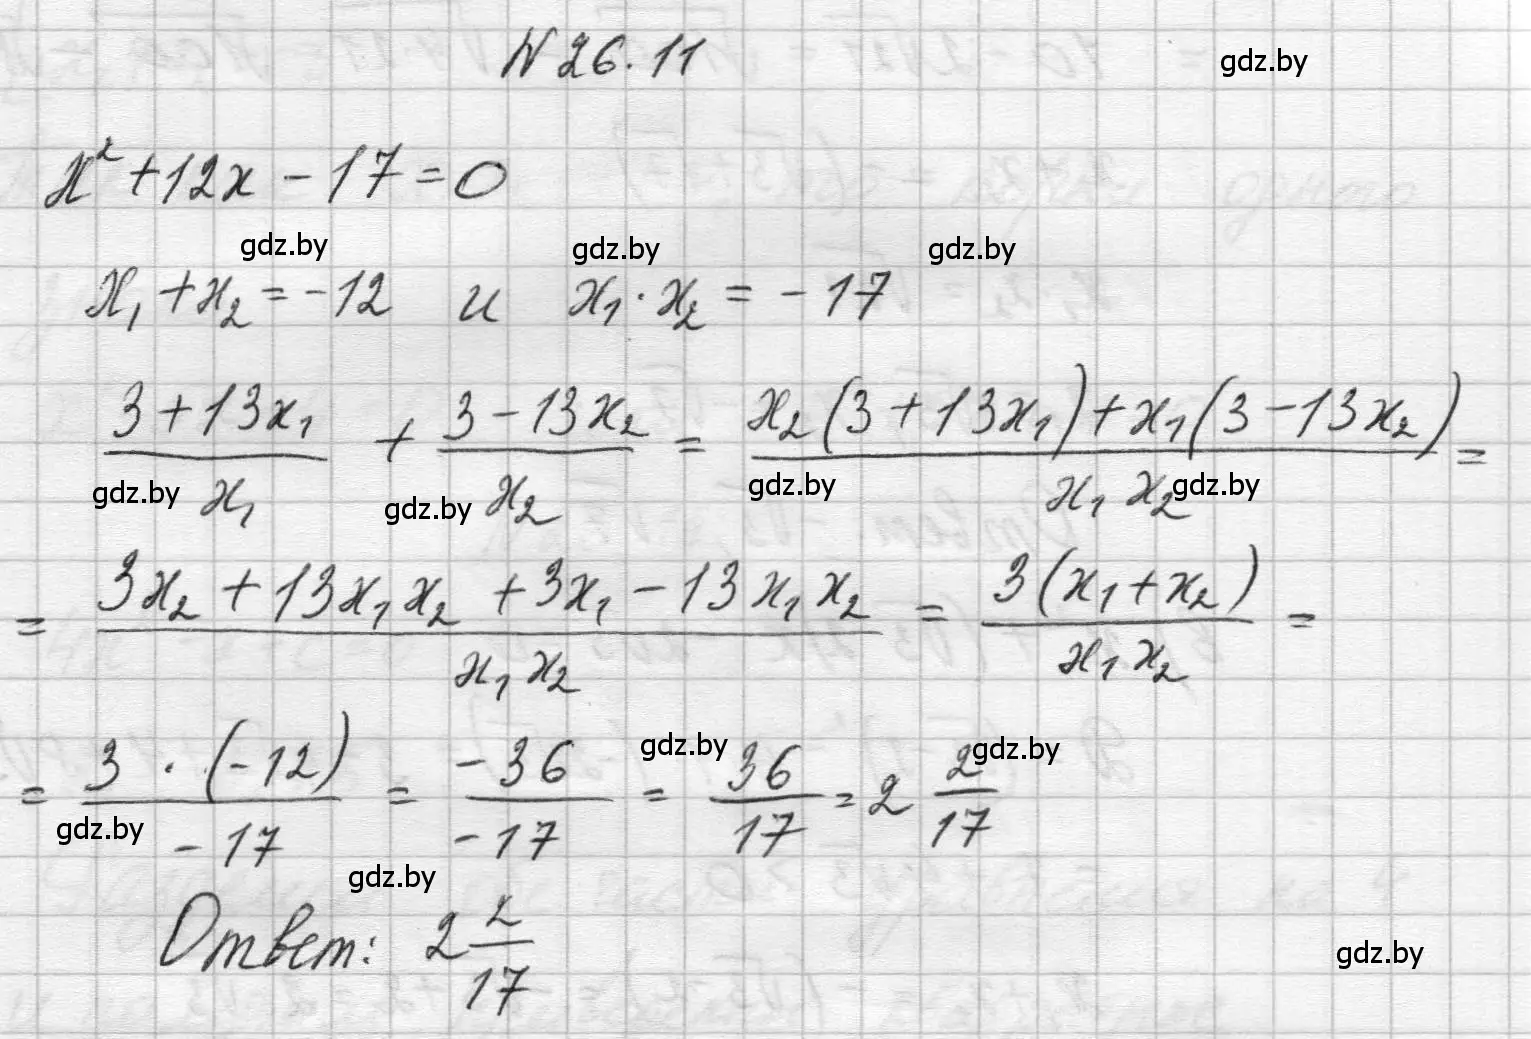 N 26.11
gdz.by
x² + 12x - 17 = 0
gdz.by gdz.by gdz.by
x₁ + x₂ = -12 и x₁ · x₂ = -17
(3 + 13x₁)/x₁ + (3 - 13x₂)/x₂ = (x₂(3 + 13x₁) + x₁(3 - 13x₂))/(x₁ x₂) =
gdz.by gdz.by gdz.by gdz.by
= (3x₂ + 13x₁x₂ + 3x₁ - 13x₁x₂)/(x₁ x₂) = 3(x₁ + x₂)/(x₁ x₂) =
gdz.by gdz.by
= 3 · (-12)/-17 = -36/-17 = 36/17 = 2 2/17
gdz.by gdz.by
Ответ: 2 2/17
gdz.by